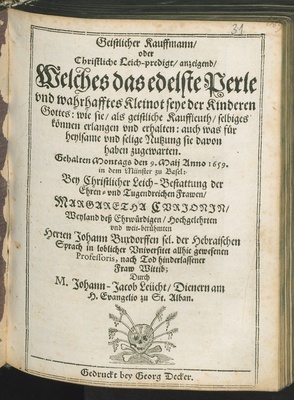 31
Geistlicher Kauffmann/
oder
Christliche Leich-predigt/ anzeigend/
Welches das edelste Perle
vnd wahrhafftes Kleinot seye der Kinderen
Gottes: wie sie/ als geistliche Kauffleuth/ selbiges
können erlangen vnd erhalten: auch was für
heylsame vnd selige Nutzung sie davon
haben zugewarten.
Gehalten Montags den 9. Maij Anno 1659.
in dem Münster zu Basel:
Bey Christlicher Leich-Bestattung der
Ehren- vnd Tugendreichen Frawen/
MARGARETHA CVRIONIN/
Weyland deß Ehrwürdigen/ Hochgelehrten
vnd weit-berühmten
Herren Johann Buxdorffen sel. der Hebraischen
Sprach in loblicher Universitet allhie gewesenen
Professoris, nach Tod hinderlassener
Fraw Wittib:
Durch
M. Johann-Jacob Leücht/ Dienern am
H. Evangelio zu St. Alban.
Gedruckt bey Georg Decker.